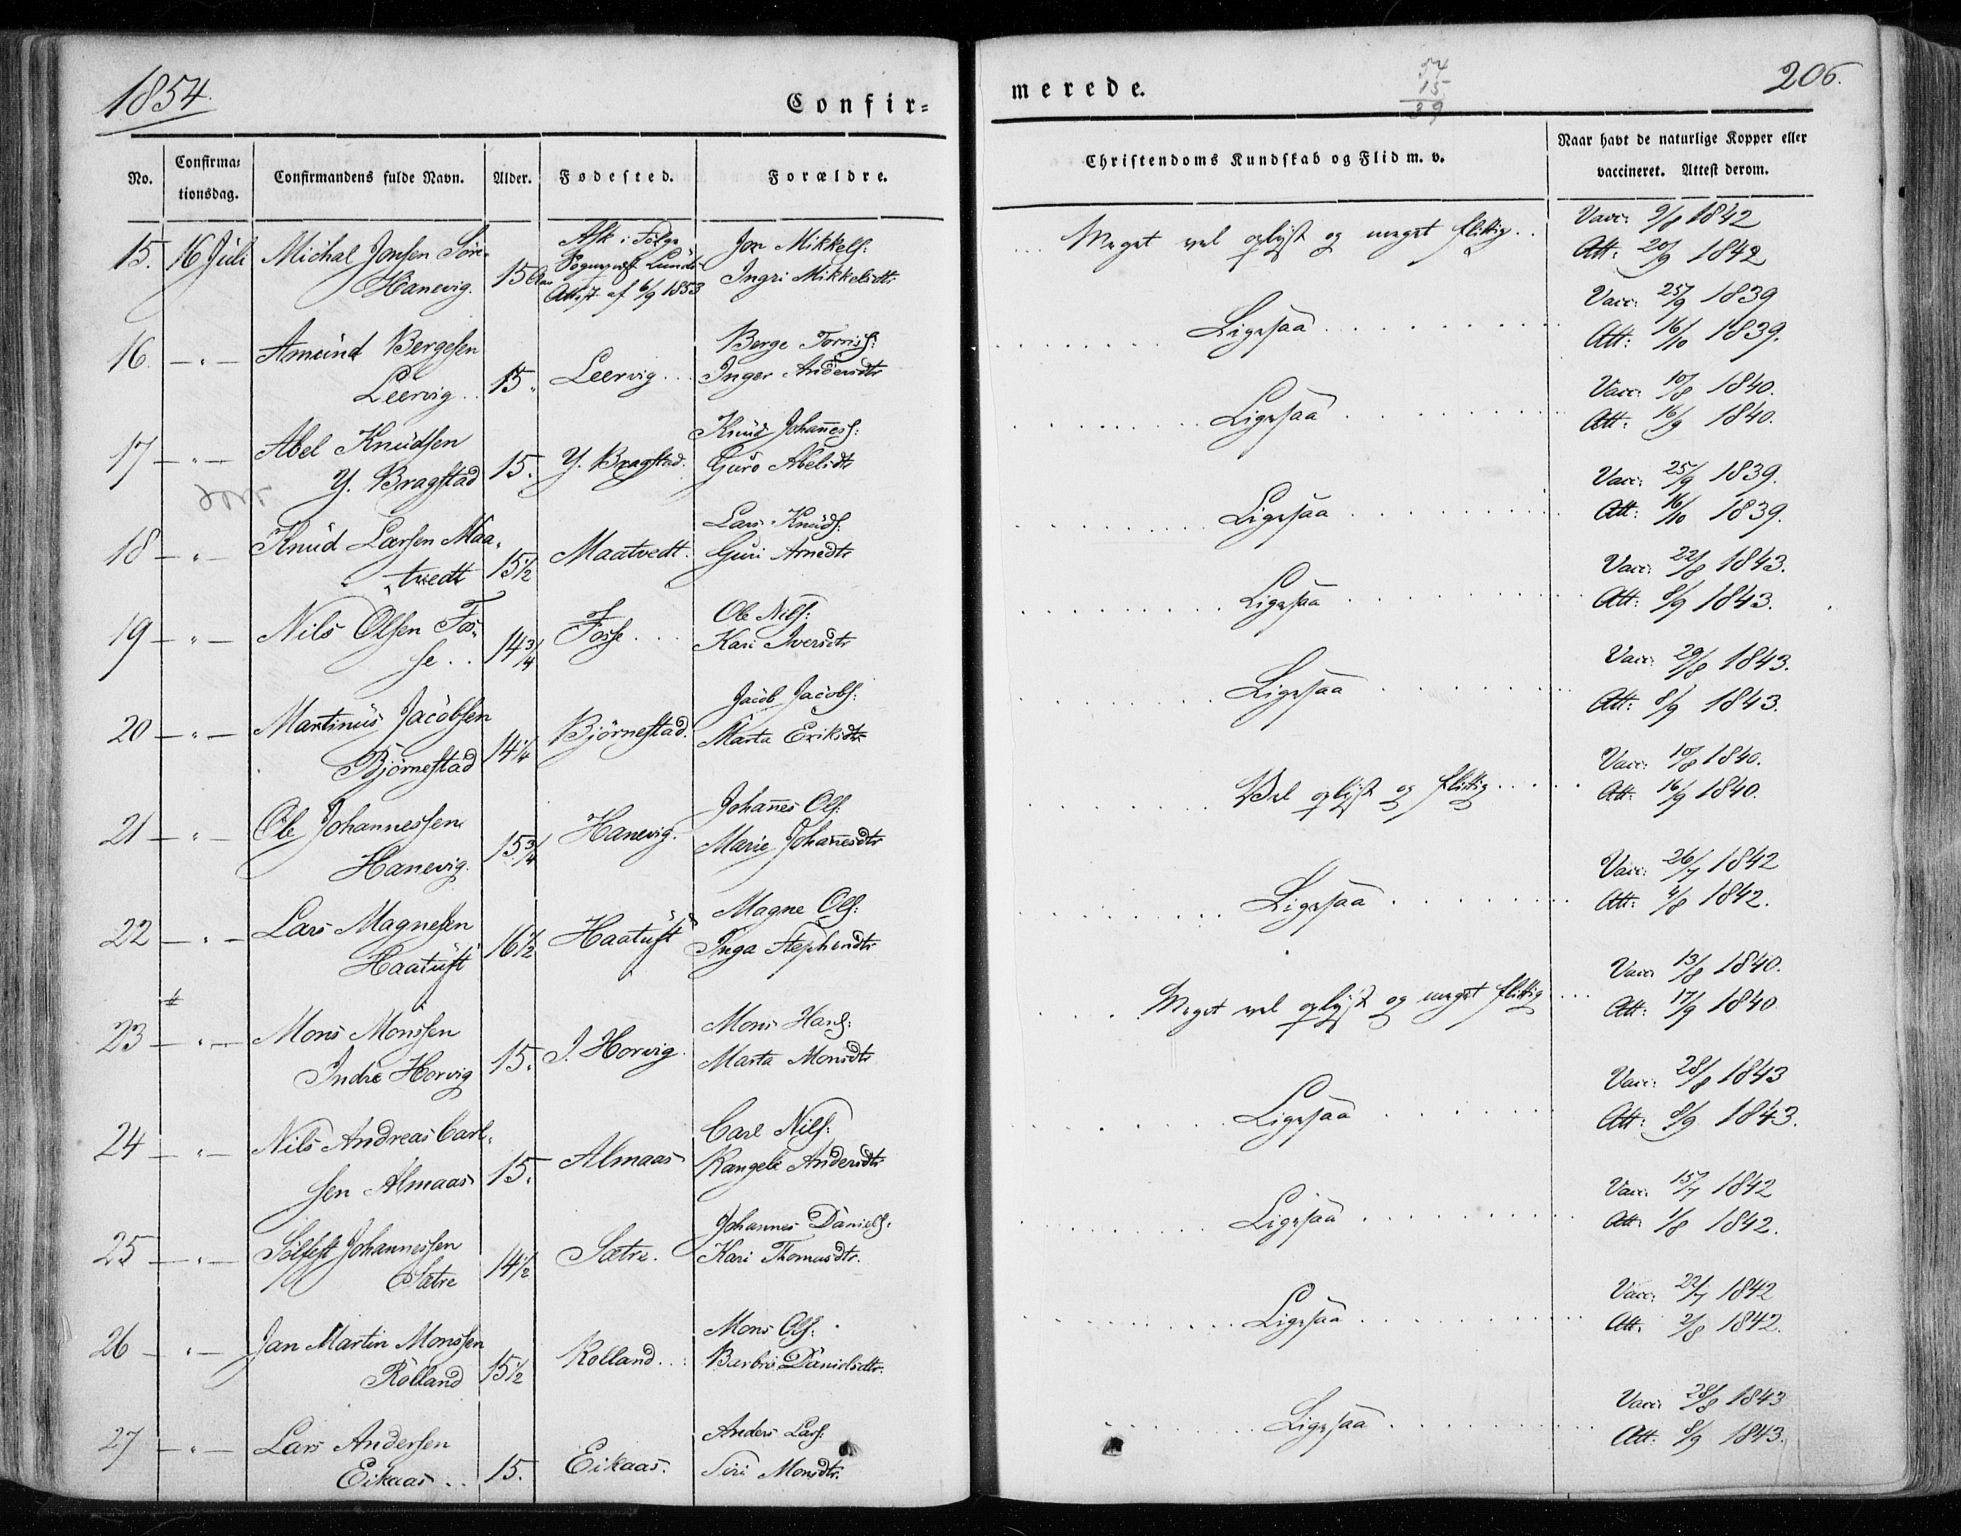 1854.
Confir-
No.
Confirma-
tionsdag.
Confirmandens fulde Navn.
Alder.
Fødested.
Forældre.
15. 16 Juli Michal Jonsen Søre
Hanevig. 15 Aar
Ask i Følge
Attest af 6/9 1853
Jon Mikkels:
Ingri Mikkelsdtr
16 — " — Amund Bergesen
Leervig. 15. Leervig
Berge Torris:
Inger Andersdtr
17 — " — Abel Knudsen
Y. Bragstad 15. Y. Bragstad.
Knud Johannes:
Guro Abelsdtr
18 — " — Knud Larsen Maa-
tvedt 15½ Maatvedt.
Lars Knuds:
Guri Arnedtr
19 — " — Nils Olsen Fos-
se 14¾ Fosse
Ole Nils:
Kari Iversdtr
20 — " — Martinus Jacobsen
Bjørnestad 14¼ Bjørnestad.
Jacob Jacobs:
Marta Eriksdtr
21 — " — Ole Johannessen
Hanevig. 15¾ Hanevig.
Johannes Ols:
Marie Johannesdtr
22 — " — Lars Magnesen
Haatuft 16½ Haatuft
Magne Ols:
Inga Stephensdtr
23 — " — Mons Monssen
Indre Horvig 15. I. Horvig.
Mons Hans:
Marta Monsdtr
24 — " — Nils Andreas Carl-
sen Almaas 15. Almaas
Carl Nils:
Rangele Andersdtr
25 — " — Sølfest Johannessen
Sætre 14½ Sætre.
Johannes Daniels:
Kari Thomasdtr.
26 — " — Jan Martin Monssen
Rolland 15½ Rolland
Mons Ols:
Barbro Danielsdtr.
27 — " — Lars Andersen
Eikaas 15. Eikaas.
Anders Lars:
Siri Monsdtr.
merede.
54
15
39
206.
Christendoms Kundskab og Flid m. v.
Naar havt de naturlige Kopper eller
vaccineret. Attest derom.
Meget vel oplyst og meget flittig
Vacc: 9/8 1842
Att: 20/9 1842
Ligesaa
Vacc: 25/9 1839
Att: 16/10 1839.
Ligesaa
Vacc: 10/8 1840.
Att: 16/9 1840.
Ligesaa
Vacc: 25/9 1839.
Att: 16/10 1839.
Ligesaa
Vacc: 22/8 1843.
Att: 8/9 1843.
Ligesaa
Vacc: 29/8 1843.
Att: 8/9 1843.
Vel oplyst og flittig
Vacc: 10/8 1840.
Att: 16/9 1840.
Ligesaa
Vacc: 26/7 1842
Att: 4/8 1842.
Meget vel oplyst og meget flittig
Vacc: 13/8 1840.
Att: 17/9 1840
Ligesaa
Vacc: 28/8 1843
Att: 8/9 1843.
Ligesaa
Vacc: 15/7 1842
Att: 1/8 1842.
Ligesaa
Vacc: 22/7 1842
Att. 2/8 1842.
Ligesaa
Vacc: 28/8 1843
Att: 8/9 1843.